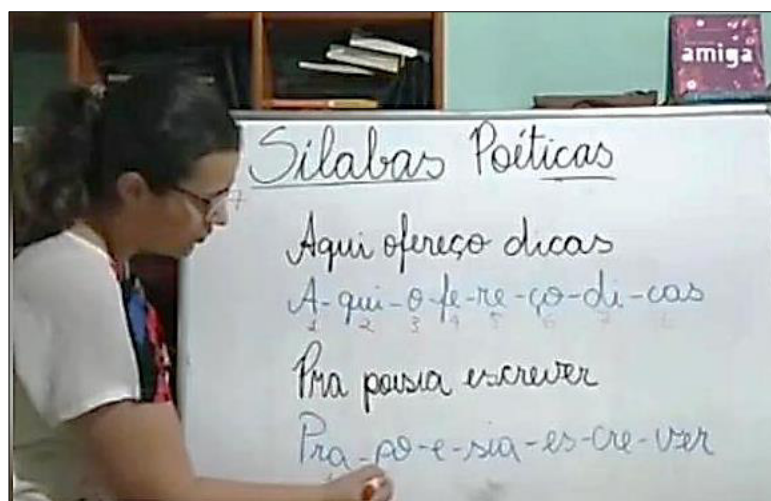 amiga
Sílabas Poéticas
Aqui ofereço dicas
A-qui-o-fe-re-ço-di-cas
1 2 3 4 5 6 7 8
Pra poesia escrever
Pra-po-e-sia-es-cre-ver